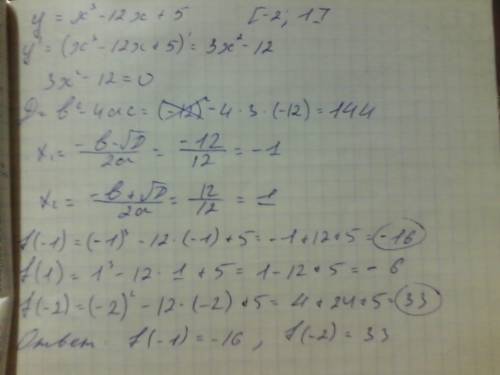 y = x³ - 12x + 5 [-2; 1]
y' = (x³ - 12x + 5)' = 3x² - 12
3x² - 12 = 0
D = b² - 4ac = (-12)² - 4 · 3 · (-12) = 144
x₁ = (-b - √D)/2a = -12/12 = -1
x₂ = (-b + √D)/2a = 12/12 = 1
f(-1) = (-1)³ - 12 · (-1) + 5 = -1 + 12 + 5 = -16
f(1) = 1³ - 12 · 1 + 5 = 1 - 12 + 5 = -6
f(-2) = (-2)² - 12 · (-2) + 5 = 4 + 24 + 5 = 33
Ответ. f(-1) = -16, f(-2) = 33